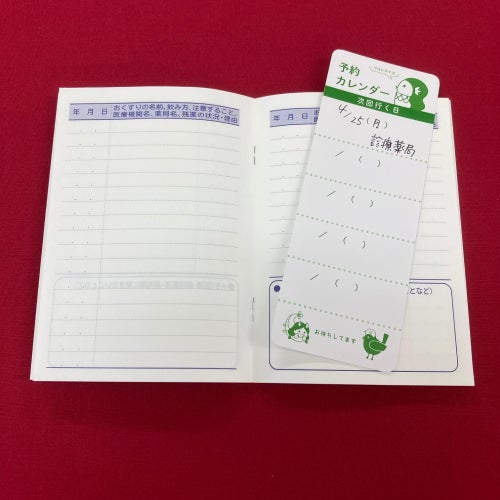 年 月 日
おくすりの名前、飲み方、注意すること、
医療機関名、薬局名、残薬の状況・理由
年 月 日
予約
カレンダー
次回行く日
4/25(月)
診療薬局
/ ( )
/ ( )
/ ( )
/ ( )
となど)
お待ちしてます